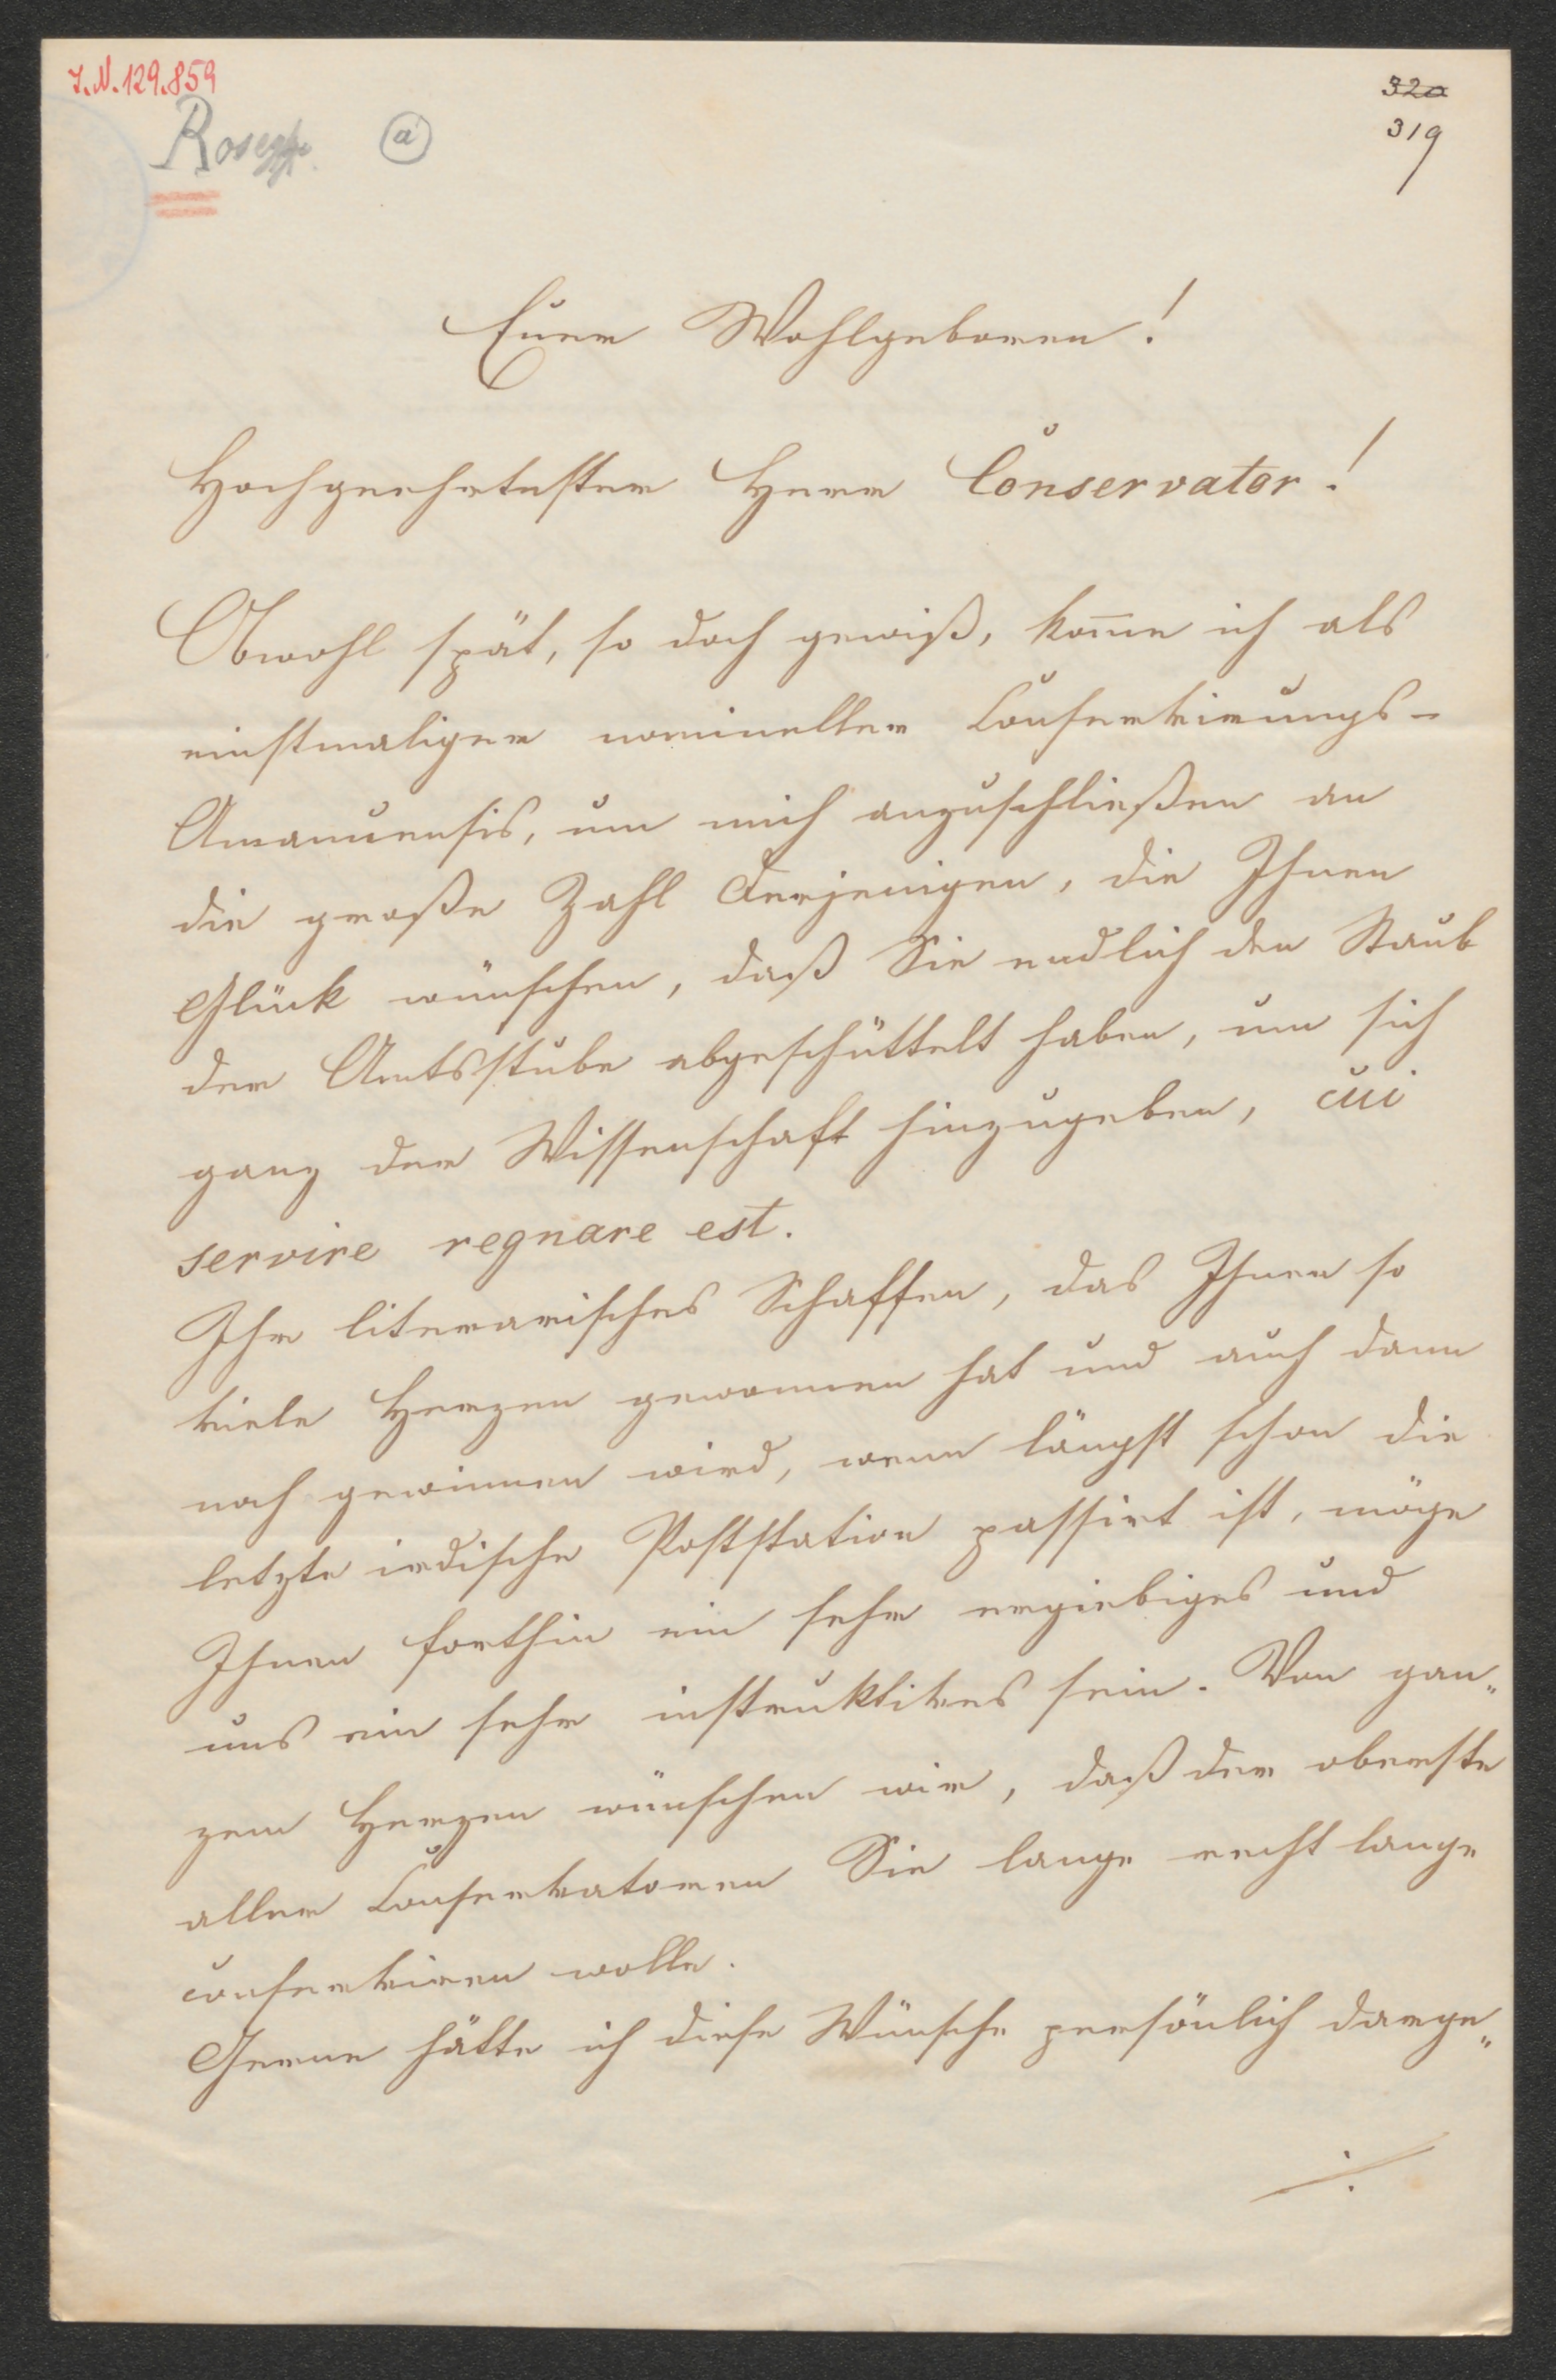 I.N. 129.859
a
320
319
Euer Wohlgeboren!
Hochgeehrtester Herr Conservator!
Obwohl spät, so doch gewiß, kom̄e ich als
einstmaliger nomineller Conservirungs-
Amanuensis, um mich anzuschließen an
die große Zahl Derjenigen, die Ihnen
Glück wünschen, daß Sie endlich den Staub
der Amtsstube abgeschüttelt haben, um sich
ganz der Wissenschaft hinzugeben, cui
servire regnare est.
Ihr literarisches Schaffen, das Ihnen so
viele Herzen gewonnen hat und auch dann
noch gewinnen wird, wenn längst schon die
letzte irdische Poststation passirt ist, möge
Ihnen forthin ein sehr ergiebiges und
uns ein sehr instruktives sein. Von gan„
zem Herzen wünschen wir, daß der oberste
aller Conservatoren Sie lange recht lange
conserviren wolle.
Gerne hätte ich diese Wünsche persönlich darge„
./.